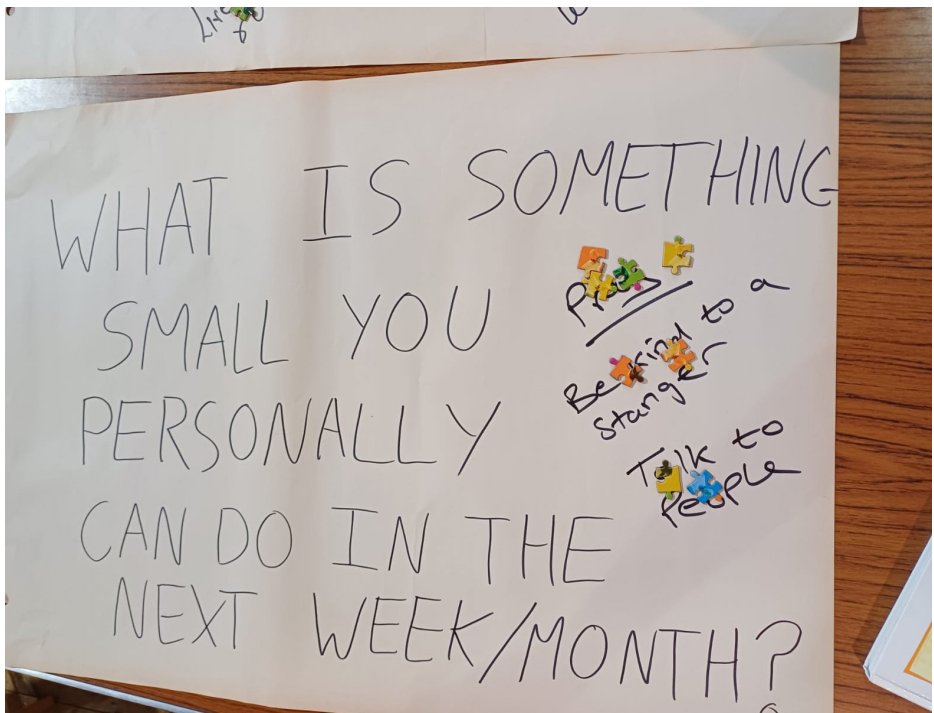 WHAT IS SOMETHING
SMALL YOU
PERSONALLY
CAN DO IN THE
NEXT WEEK/MONTH?
Pray
Be kind to a
stanger
Talk to
People